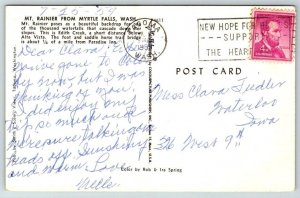 7-25-59
MT. RAINIER FROM MYRTLE FALLS, WASH.
Mt. Rainier poses as a beautiful backdrop for one
of the thousand waterfalls that cascade down its
slopes. This is Edith Creek, a short distance below
Alta Vista. The foot and saddle horse trail bridge
is about ¼ of a mile from Paradise Inn.
NEW HOPE FOR
SUPPORT
THE HEART
POST CARD
Dear Clara:
gone to
now, but I was
thinking of you.
I did enjoy my
so much and
treasure talking our
heads off. Sunshiny
and warm. Love,
Nelle.
Miss Clara Fiedler
Waterloo
Iowa
326 West 9th
Color by Bob & Ira Spring